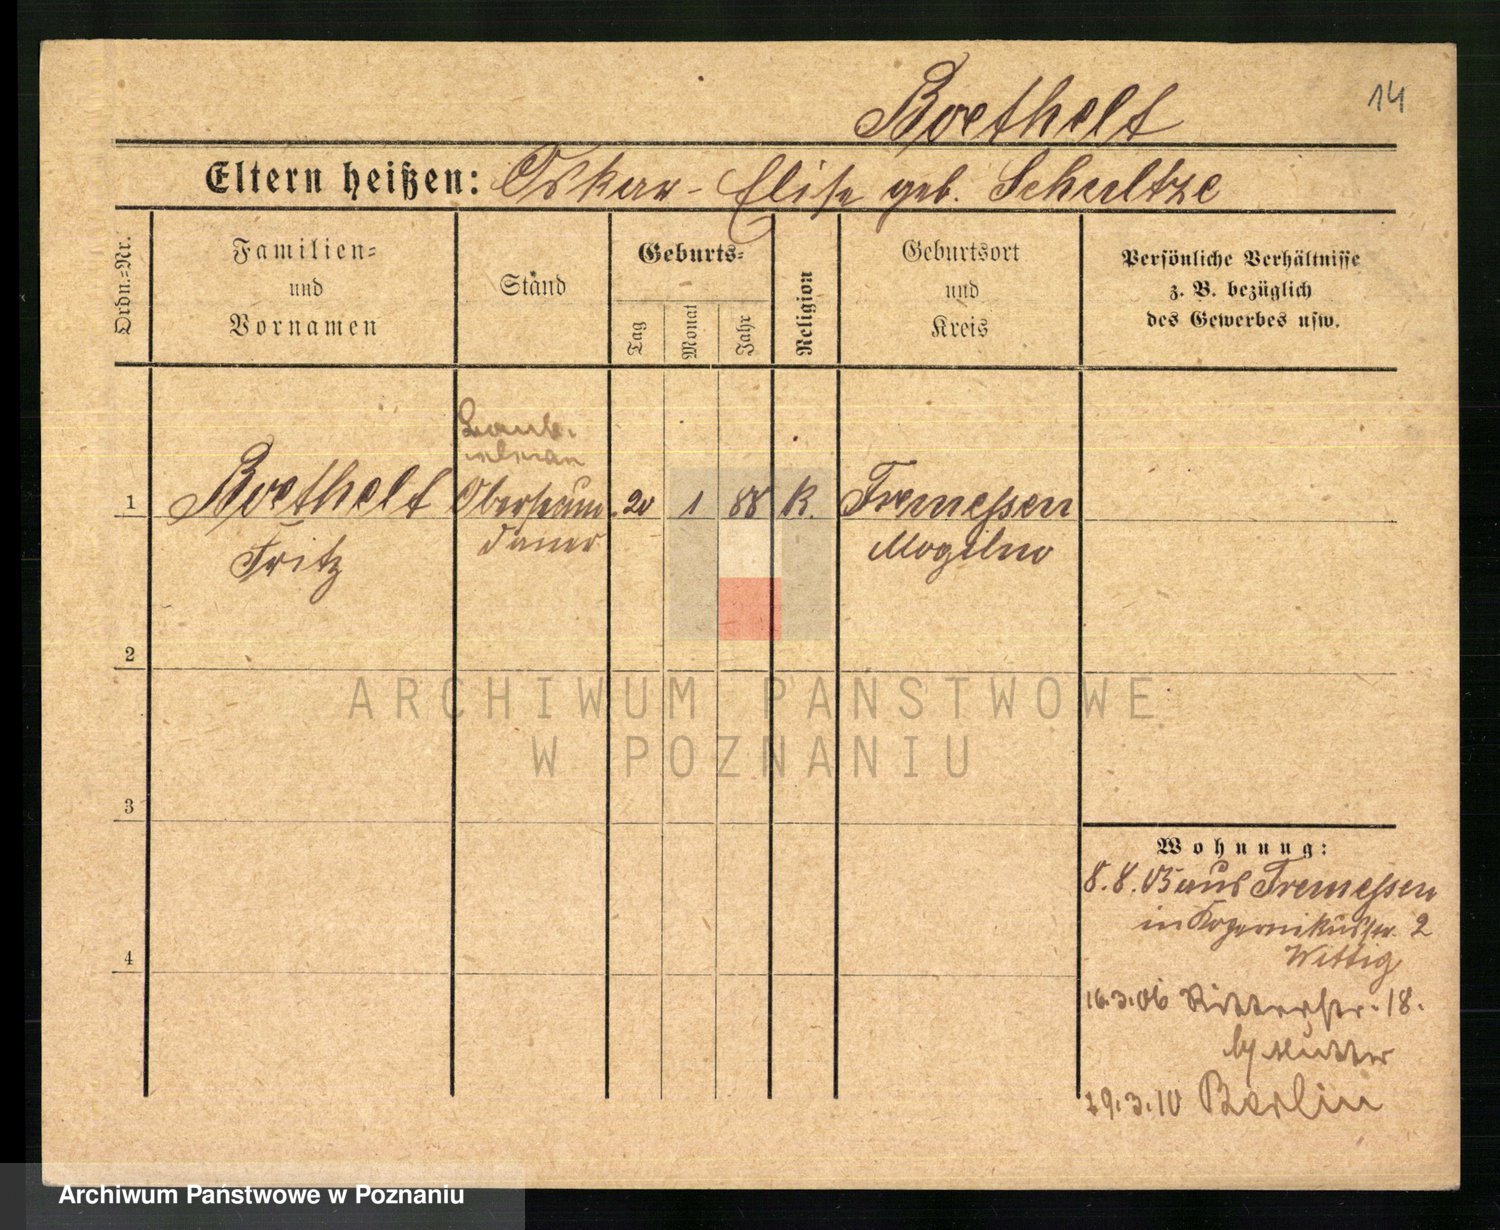 14
Boethelt
Eltern heißen: Oskar - Elise geb. Schultze
Ordn.-Nr.
Familien-
und
Vornamen
Stand
Geburts-
Tag
Monat
Jahr
Religion
Geburtsort
und
Kreis
Persönliche Verhältnisse
z. B. bezüglich
des Gewerbes usw.
1
Boethelt
Fritz
Obersekun
daner
20
1
88
K.
Tremessen
Mogilno
2
3
4
Wohnung:
8.8.05 aus Tremessen
in Kopernikusstr. 2
Wittig
16.3.06 Ritterstr. 18.
b/ Mutter
29.3.10 Berlin
ARCHIWUM PAŃSTWOWE
W POZNANIU
Archiwum Państwowe w Poznaniu